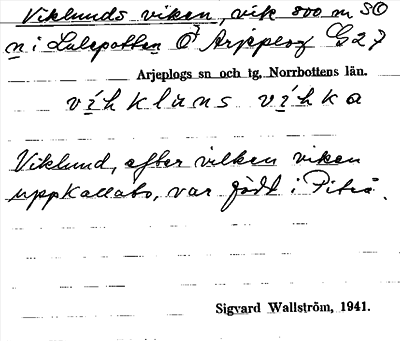 Viklunds viken, vik 800 m SO
n i Lulepotten O Arjeplog G27
Arjeplogs sn och tg, Norrbottens län.
víhkluns víhka
Viklund, efter vilken viken
uppkallats, var född i Piteå.
Sigvard Wallström, 1941.